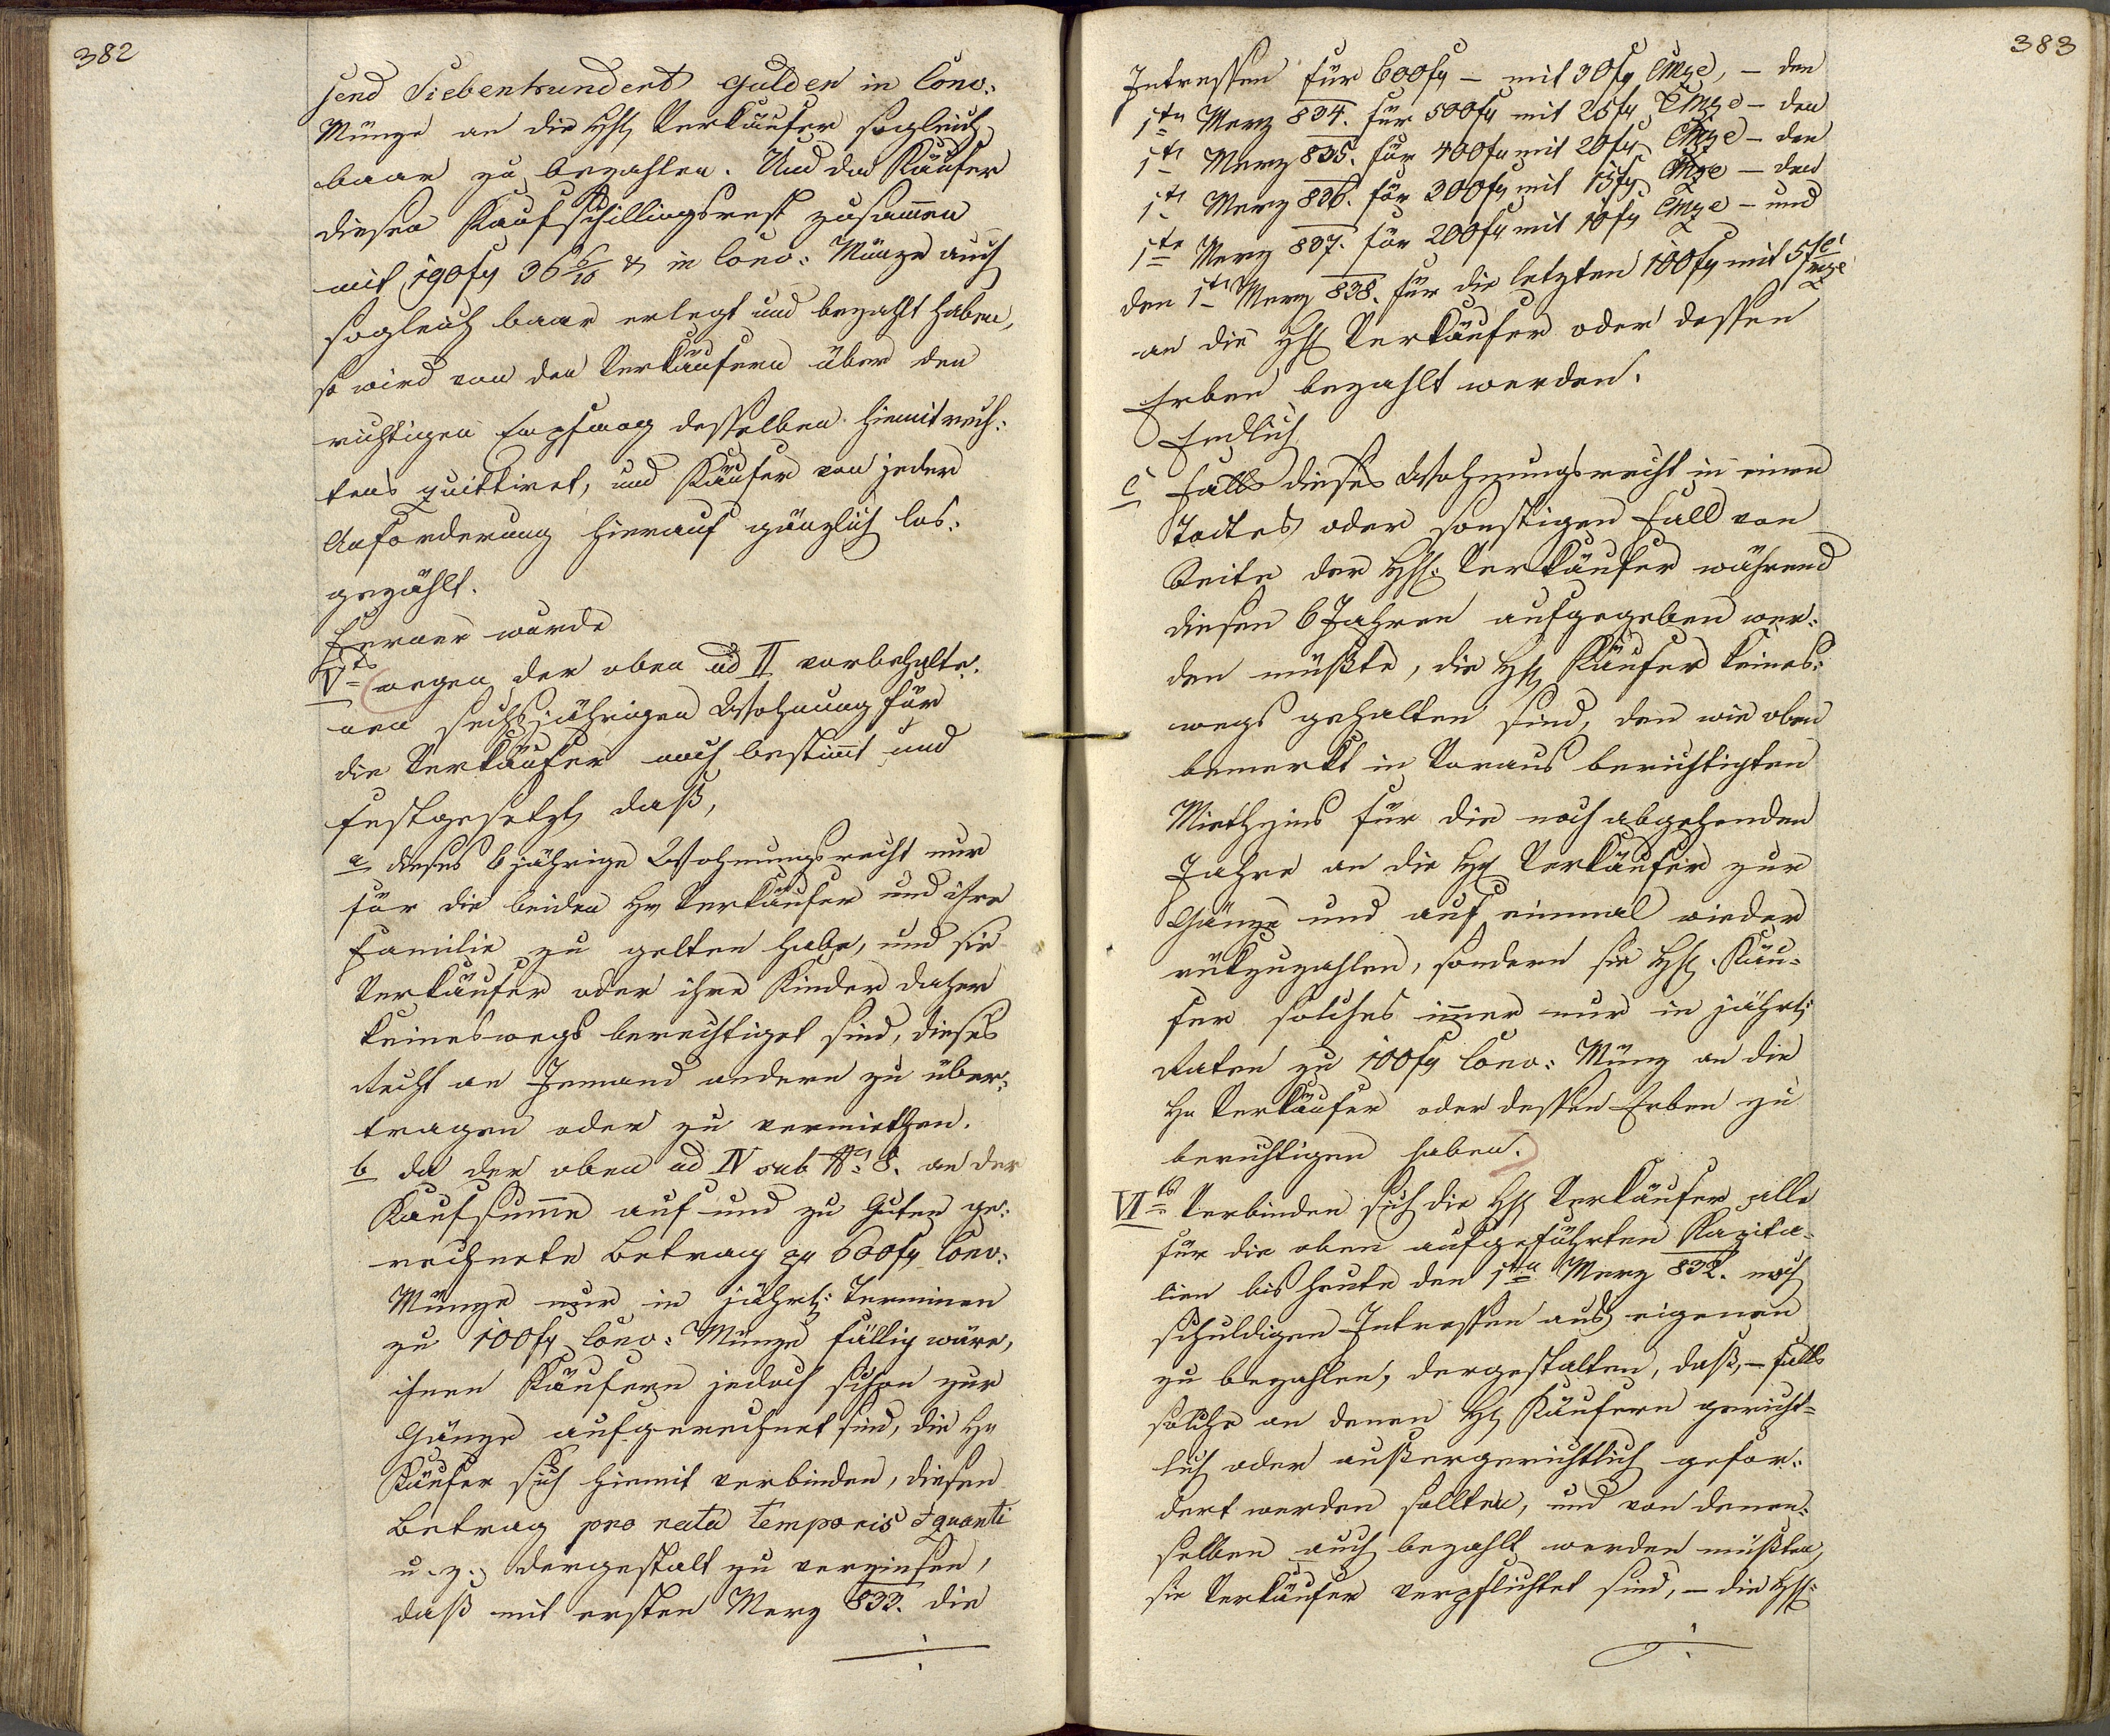 382
send Siebenhundert Gulden in Conv:
Münze an die HH Verkäufer sogleich
baar zu bezahlen. Und da Käufer
diesen Kaufschillingsrest zusam̄en
mit 190 fr 36 6/10 xr in Conv: Münze auch
sogleich baar erlegt und bezahlt haben,
so wird von den Verkäufern über den
richtigen Empfang desselben hiemit rech:
tens quittiret, und Käufer von jeder
Anforderung hierauf gänzlich los:
gezählt.
Ferner wurde
Vtens wegen der oben ad II vorbehalte:
nen sechsjährigen Wohnung für
die Verkäufer noch bestim̄t und
festgesetzt, daß,
a dieses 6 jährige Wohnungsrecht nur
für die beiden HH Verkäufer und ihre
Familie zu gelten habe, und sie
Verkäufer oder ihre Kinder daher
keineswegs berechtiget sind, dieses
Recht an Jemand andern zu über:
tragen oder zu vermiethen.
b da der oben ad IV sub No 8. an der
Kaufsum̄e auf und zu Guten ge:
rechnete Betrag pr 600 fr Conv:
Münze nur in jährl: Terminen
zu 100 fr Conv: Münze fällig wäre,
ihnen Käufern jedoch schon zur
Gänze aufgerechnet sind, die HH
Käufer sich hiemit verbinden, diesen
Betrag pro rata temporis & quanti
u. z. dergestalt zu verzinsen,
daß mit ersten Merz 833. die
383
Intressen für 600 fr – mit 30 fr CMze, – den
1ten Merz 834. für 500 fr mit 25 fr CMze – den
1ten Merz 835. für 400 fr mit 20 fr CMze – den
1ten Merz 836. für 300 fr mit 15 fr CMze – den
1ten Merz 837. für 200 fr mit 10 fr CMze – und
den 1ten Merz 838. für die letzten 100 fr mit 5 fr CMze
an die HH Verkäufer oder dessen
Erben bezahlt werden.
Endlich
c falls dieses Wohnungsrecht in einen
Todtes oder sonstigen Fall von
Seite der HH: Verkäufer während
diesen 6 Jahren aufgegeben wer:
den müßte, die HH Käufer keines:
wegs gehalten sind, den wie oben
bemerkt in Voraus berichtigten
Miethzins für die noch abgehenden
Jahre an die HH Verkäufer zur
Gänze und auf einmal wieder
rükzuzahlen, sondern sie HH. Käu-
fer solches im̄er nur in jährl:
Raten zu 100 fr Conv: Münz an die
HH Verkäufer oder dessen Erben zu
berichtigen haben.
VItens Verbinden sich die HH Verkäufer alle
für die oben aufgeführten Kapita-
lien bis heute den 1ten Merz 832. noch
schuldigen Intressen aus eigenen
zu bezahlen, dergestalten, daß, – falls
solche an denen HH Käufern gericht-
lich oder außergerichtlich gefor:
dert werden sollten, und von denen:
selben auch bezahlt werden müßten,
sie Verkäufer verpflichtet sind, – die HH: